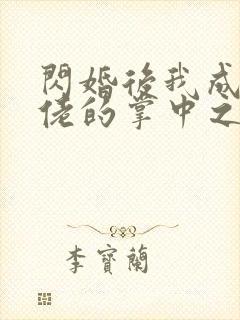 閃婚後我成
佬的掌中之
李寶蘭